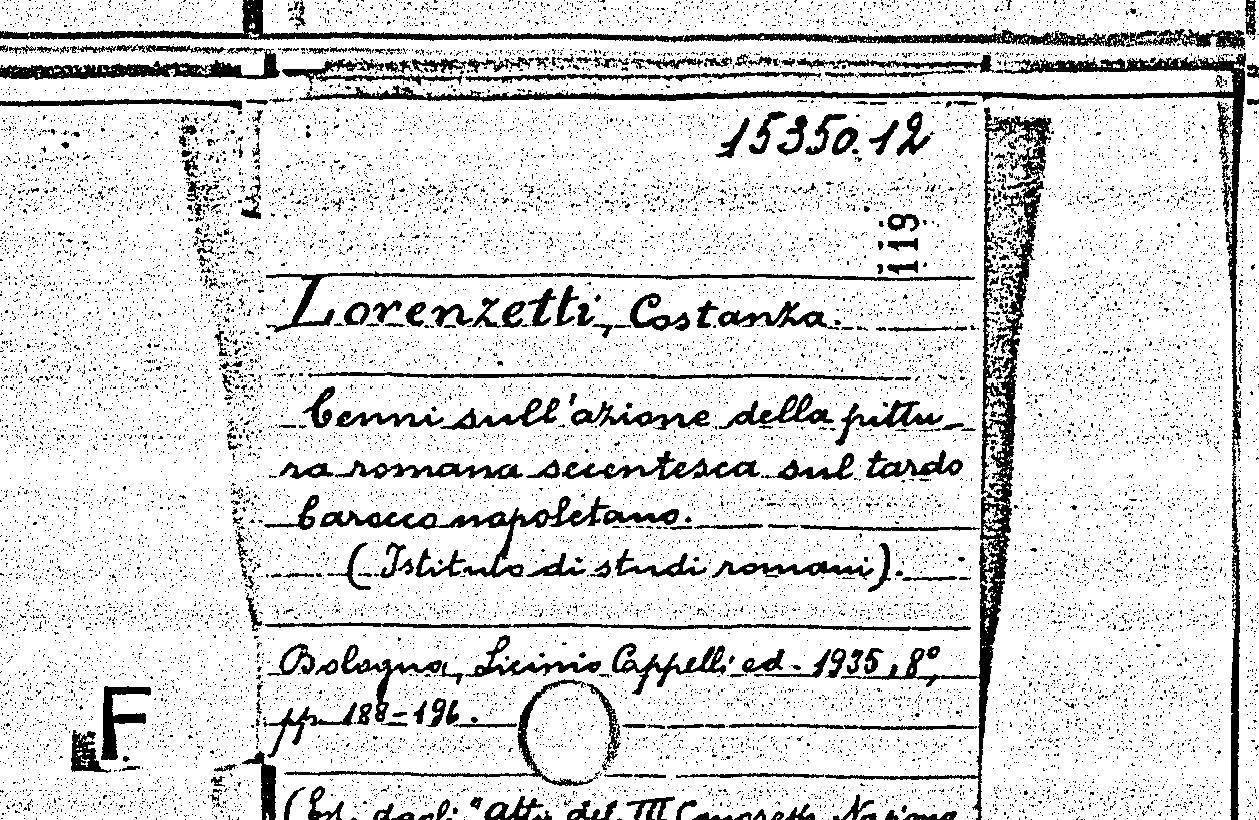 15350.12
119
Lorenzetti, Costanza.
Cenni sull'azione della pittu_
ra romana secentesca sul tardo
barocco napoletano.
(Istituto di studi romani).
Bologna, Licinio Cappelli ed. 1935, 8°,
pp. 188-196.
F.
(Est. dagli "Atti del III Congresso Naziona